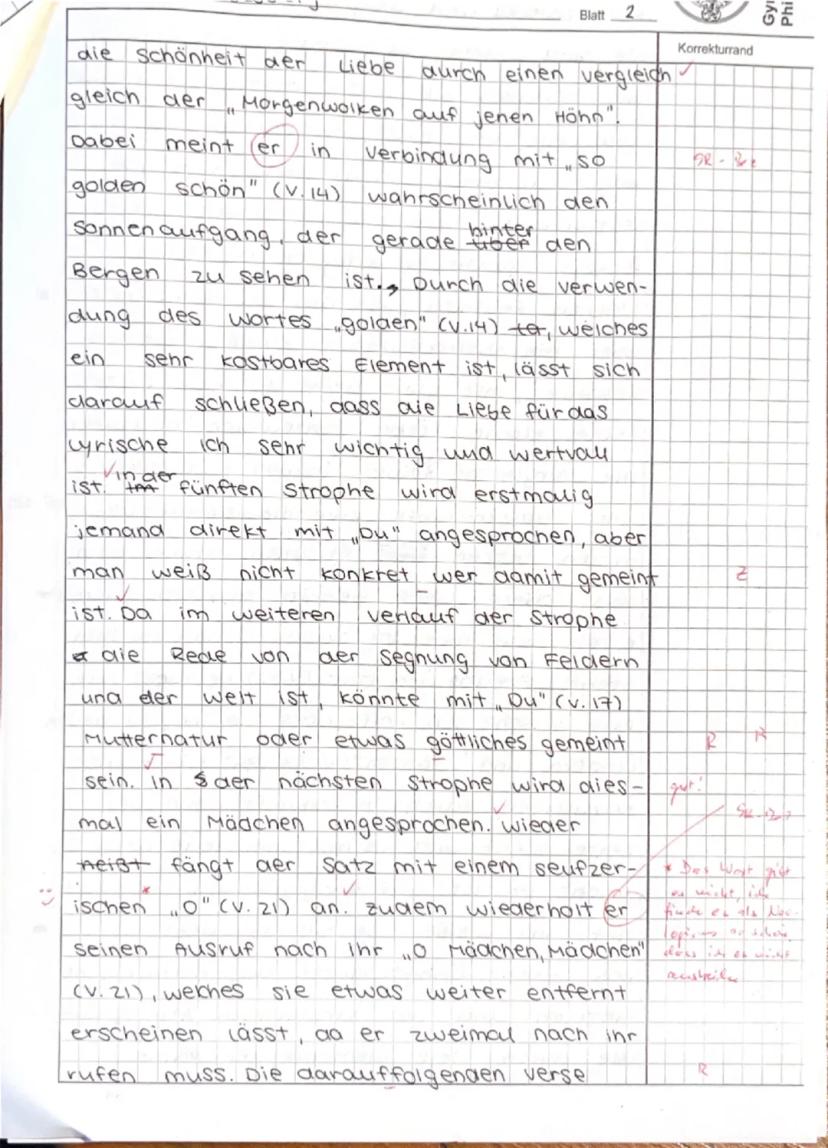 Blatt 2
Gy
Phi
Korrekturrand
die Schönheit der Liebe durch einen Vergleich
gleich der „Morgenwolken auf jenen Höhn".
Dabei meint er in Verbindung mit „so
golden schön" (V.14) wahrscheinlich den
Sonnenaufgang, der gerade hinter über den
Bergen zu sehen ist., Durch die Verwen-
dung des Wortes „golden" (V.14) ter, welches
ein sehr kostbares Element ist, lässt sich
darauf schließen, dass die Liebe für das
Lyrische Ich sehr wichtig und wertvoll
ist. Im in der fünften Strophe wird erstmalig
jemand direkt mit „Du" angesprochen, aber
man weiß nicht konkret wer damit gemeint
Z
ist. Da im weiteren Verlauf der Strophe
die Rede von der Segnung von Feldern
und der Welt ist, könnte mit „Du" (V.17)
Mutternatur oder etwas göttliches gemeint
R R
sein. In der nächsten Strophe wird dies-
gut!
mal ein Mädchen angesprochen. Wieder
heißt fängt der Satz mit einem seufzer-
* Das Wort gibt
ischen „O" (V.21) an. Zudem wiederholt er
es nicht, ich
finde es als Neo-
seinen Ausruf nach ihr „O Mädchen, Mädchen"
dass ich es nicht
(V.21), welches sie etwas weiter entfernt
anstreiche
erscheinen lässt, da er zweimal nach ihr
rufen muss. Die darauffolgenden Verse
R